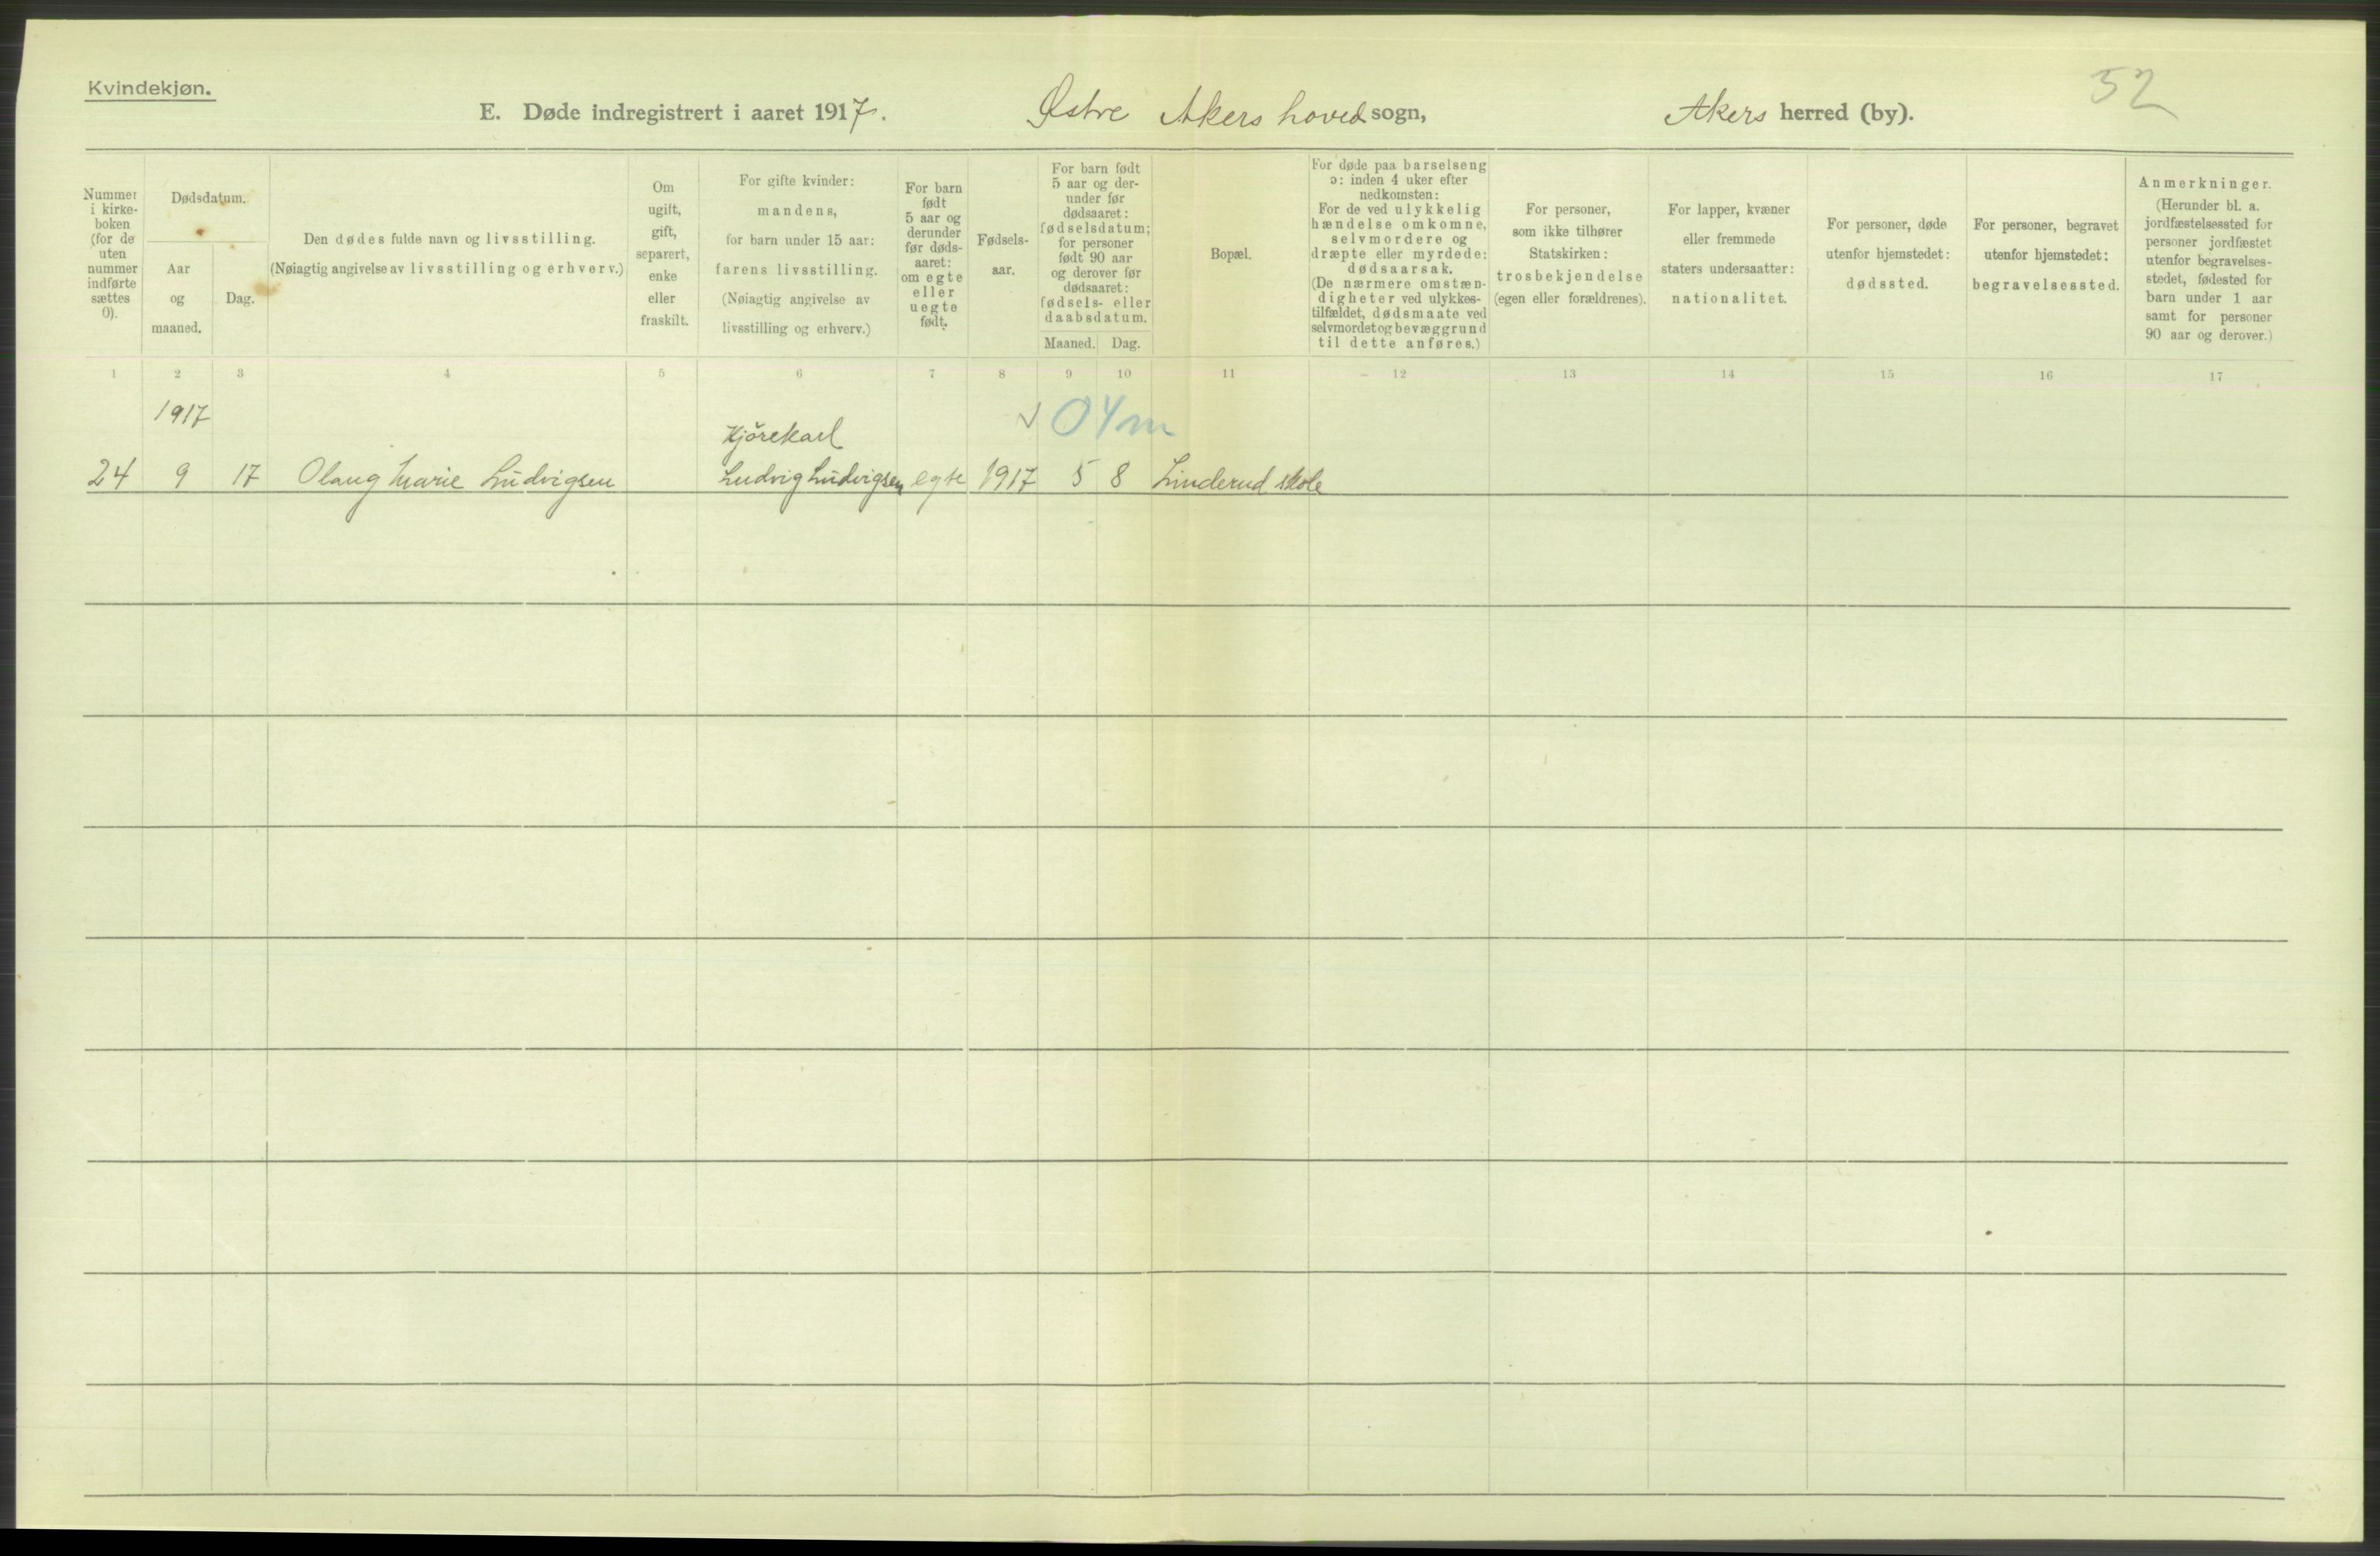 Kvindekjøn.
52
E. Døde indregistrert i aaret 1917. Østre Akers hovedsogn, Akers herred (by).
Nummer i kirke-boken (for de uten nummer indførte sættes 0).
Dødsdatum.
Aar og maaned.
Dag.
Den dødes fulde navn og livsstilling.
(Nøiagtig angivelse av livsstilling og erhverv.)
Om ugift, gift, separert, enke eller fraskilt.
For gifte kvinder: mandens, for barn under 15 aar: farens livsstilling. (Nøiagtig angivelse av livsstilling og erhverv.)
For barn født 5 aar og derunder før døds-aaret: om egte eller uegte født.
Fødsels-aar.
For barn født 5 aar og der-under før dødsaaret: fødselsdatum; for personer født 90 aar og derover før dødsaaret: fødsels- eller daabsdatum.
Maaned. Dag.
Bopæl.
For døde paa barselseng ɔ: inden 4 uker efter nedkomsten: For de ved ulykkelig hændelse omkomne, selvmordere og dræpte eller myrdede: dødsaarsak. (De nærmere omstæn-digheter ved ulykkes-tilfældet, dødsmaate ved selvmordet og bevæggrund til dette anføres.)
For personer, som ikke tilhører Statskirken: trosbekjendelse (egen eller forældrenes).
For lapper, kvæner eller fremmede staters undersaatter: nationalitet.
For personer, døde utenfor hjemstedet: dødssted.
For personer, begravet utenfor hjemstedet: begravelsessted.
Anmerkninger. (Herunder bl. a. jordfæstelsessted for personer jordfæstet utenfor begravelses-stedet, fødested for barn under 1 aar samt for personer 90 aar og derover.)
1 2 3 4 5 6 7 8 9 10 11 12 13 14 15 16 17
1917 Kjörekarl 04m
24 9 17 Olaug Marie Ludvigsen Ludvig Ludvigsen egte 1917 5 8 Linderud skole